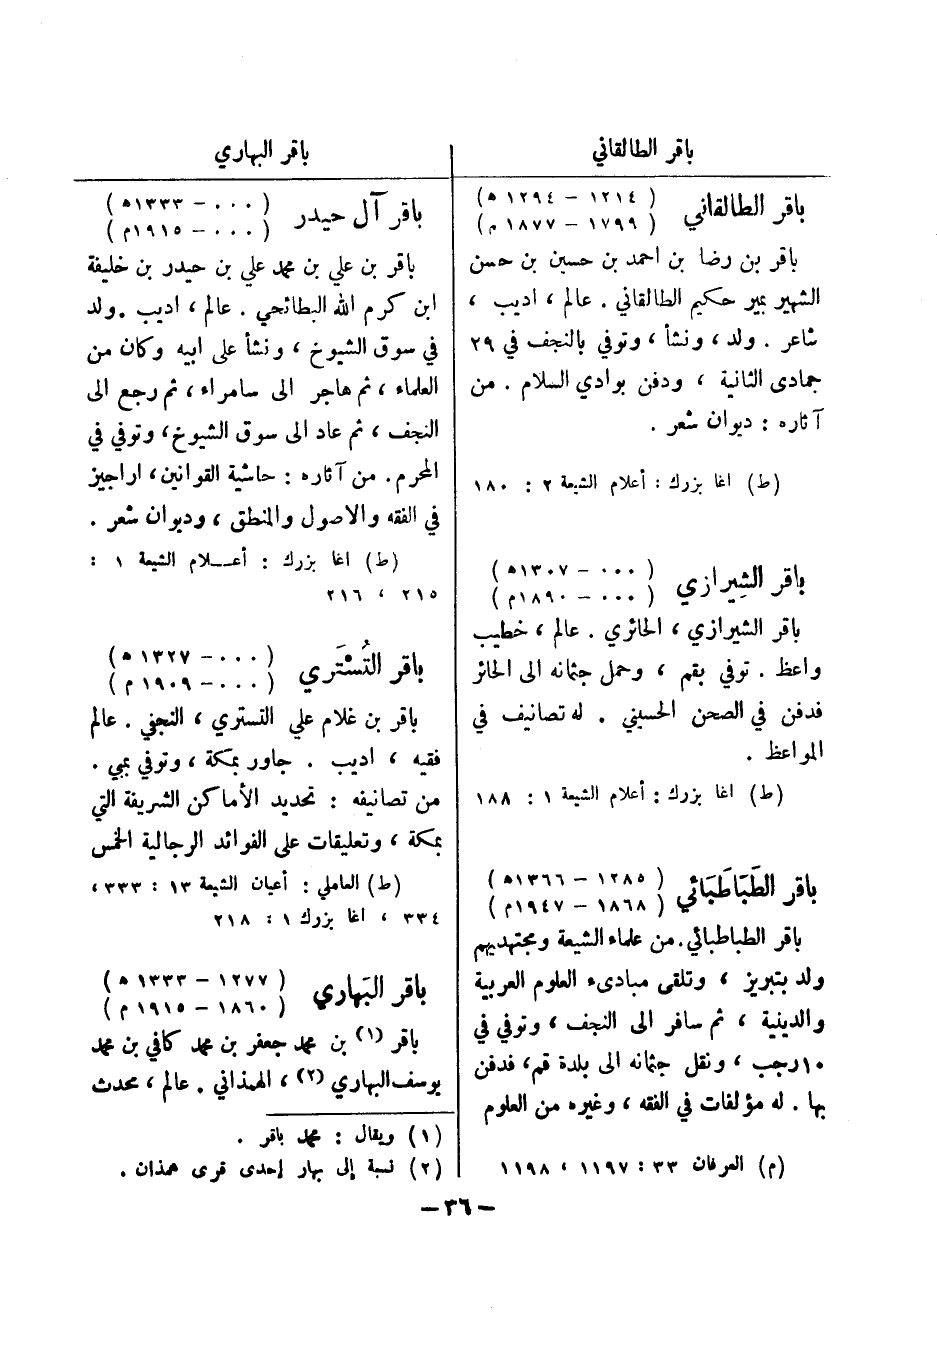 باقر الطالقاني
باقر الطالقاني
( ١٢١٤ – ١٢٩٤ ه )
( ١٧٩٩ – ١٨٧٧ م )
باقر بن رضا بن احمد بن حسين بن حسن
الشهير بمير حكيم الطالقاني . عالم ، اديب ،
شاعر . ولد ، ونشأ ، وتوفي بالنجف في ٢٩
جمادى الثانية ، ودفن بوادي السلام . من
آثاره : ديوان شعر .
(ط) اغا بزرك : أعلام الشيعة ٢ : ١٨٠
باقر الشِيرازي
( ٠٠٠ – ١٣٠٧ه )
( ٠٠٠ – ١٨٩٠م )
باقر الشيرازي ، الحائري . عالم ، خطيب
واعظ . توفي بقم ، وحمل جثمانه الى الحائر
فدفن في الصحن الحسيني . له تصانيف في
المواعظ .
(ط) اغا بزرك : أعلام الشيعة ١ : ١٨٨
باقر الطَبَاطَبَائي
( ١٢٨٥ – ١٣٦٦ه )
( ١٨٦٨ – ١٩٤٧م )
باقر الطباطبائي.من علماء الشيعة ومجتهديهم
ولد بتبريز ، وتلقى مبادىء العلوم العربية
والدينية ، ثم سافر الى النجف ، وتوفي في
١٠رجب ، ونقل جثمانه الى بلدة قم، فدفن
بها . له مؤلفات في الفقه ، وغيره من العلوم
(م) العرفان ٣٣ : ١١٩٧ ، ١١٩٨
باقر البهاري
باقر آل حيدر
( ٠٠٠ – ١٣٣٣ه )
( ٠٠٠ – ١٩١٥م )
باقر بن علي بن محمد علي بن حيدر بن خليفة
ابن كرم الله البطائحي . عالم ، اديب .ولد
في سوق الشيوخ ، ونشأ على ابيه وكان من
العلماء ، ثم هاجر الى سامراء ، ثم رجع الى
النجف ، ثم عاد الى سوق الشيوخ، وتوفي في
المحرم. من آثاره : حاشية القوانين، اراجيز
في الفقه والاصول والمنطق ، وديوان شعر .
(ط) اغا بزرك : أعـــلام الشيعة ١ :
٢١٥ ، ٢١٦
باقر التُسْتَري
( ٠٠٠ – ١٣٢٧ ه )
( ٠٠٠ – ١٩٠٩ م )
باقر بن غلام علي التستري ، النجفي . عالم
فقيه ، اديب . جاور بمكة ، وتوفي بمبي .
من تصانيفه : تحديد الأماكن الشريفة التي
بمكة ، وتعليقات على الفوائد الرجالية الخمس
(ط) العاملي : أعيان الشيعة ١٣ : ٣٣٣ ،
٣٣٤ ، اغا بزرك ١ : ٢١٨
باقر البَهاري
( ١٢٧٧ – ١٣٣٣ ه )
( ١٨٦٠ – ١٩١٥ م )
باقر (١) بن محمد جعفر بن محمد كافي بن محمد
يوسف البهاري (٢) ، الهمذاني . عالم ، محدث
(١) ويقال : محمد باقر .
(٢) نسبة إلى بهار إحدى قرى همذان .
– ٣٦ –